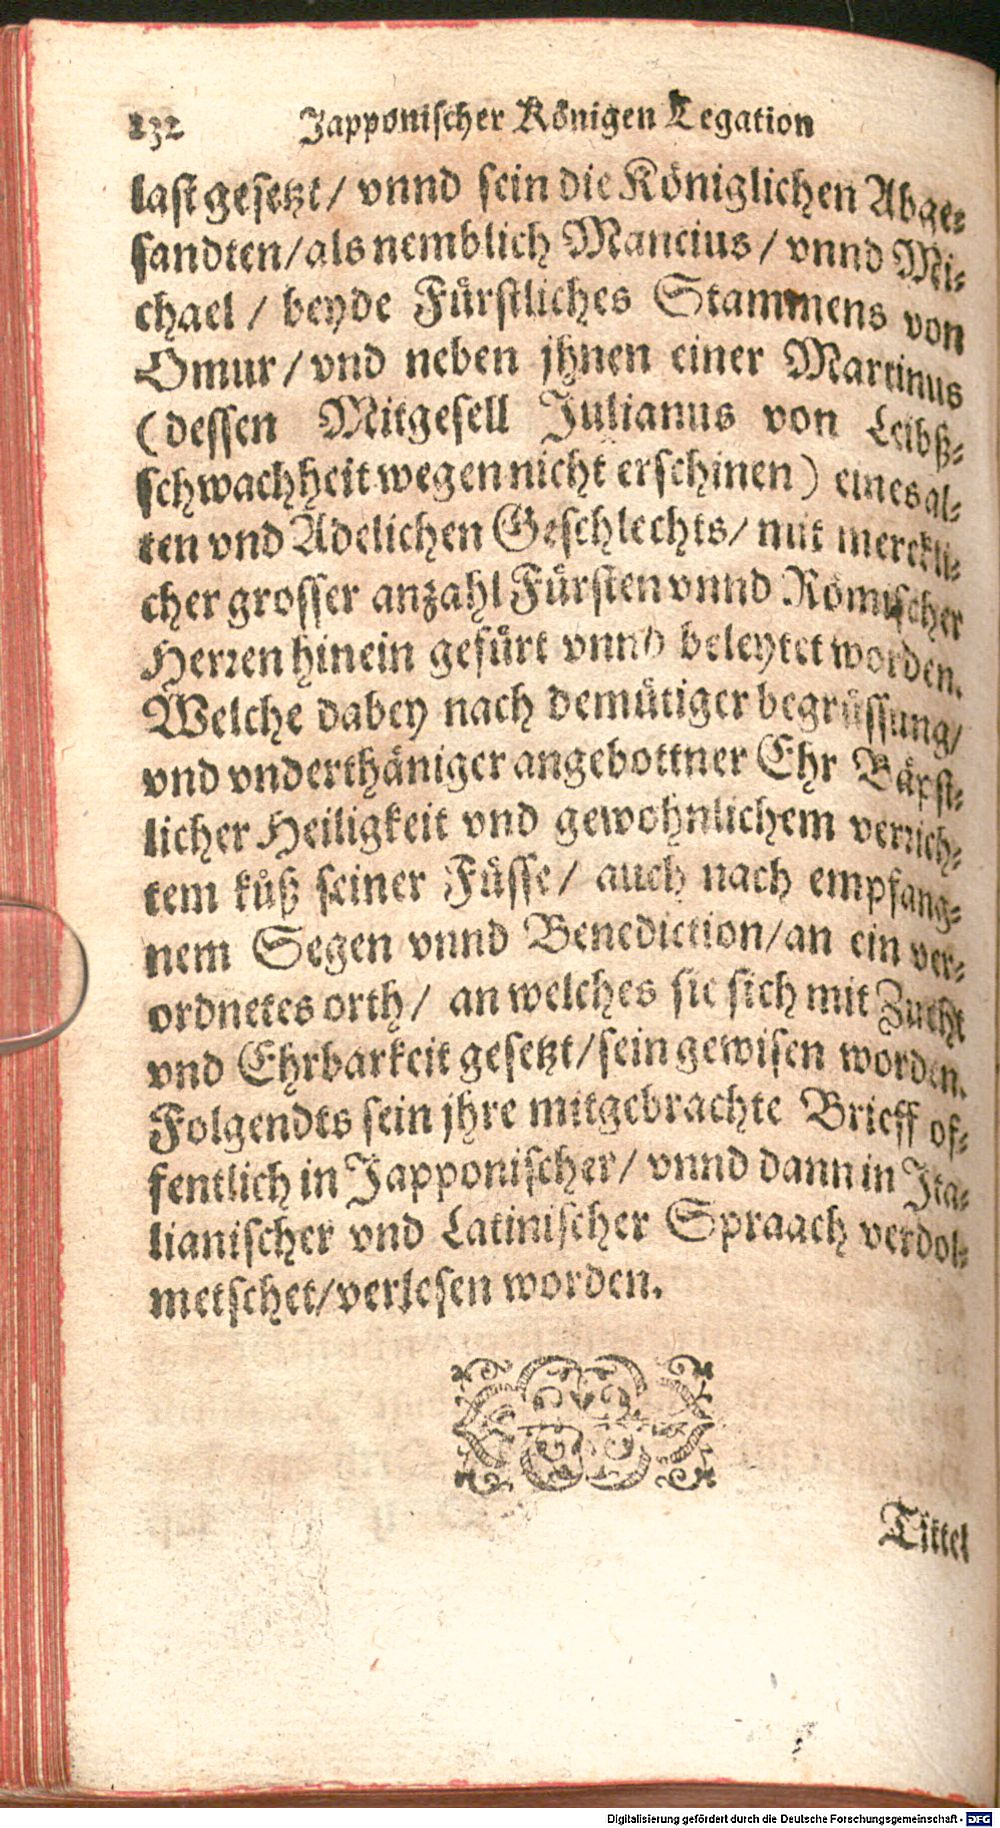 232 Japponischer Königen Legation
last gesetzt / vnnd sein die Königlichen Abge-
sandten / als nemblich Mancius / vnnd Mi-
chael / beyde Fürstliches Stammens von
Omur / vnd neben jhnen einer Martinus
(dessen Mitgesell Julianus von Leibß-
schwachheit wegen nicht erschinen) eines al-
ten vnd Adelichen Geschlechts / mit merckli-
cher grosser anzahl Fürsten vnnd Römischer
Herren hinein gefürt vnnd beleytet worden.
Welche dabey nach demütiger begrüssung /
vnd vnderthäniger angebottner Ehr Bäpst-
licher Heiligkeit vnd gewohnlichem verrich-
tem kuß seiner Füsse / auch nach empfang-
nem Segen vnnd Benediction / an ein ver-
ordnetes orth / an welches sie sich mit Zucht
vnd Ehrbarkeit gesetzt / sein gewisen worden.
Folgendts sein jhre mitgebrachte Brieff of-
fentlich in Japponischer / vnnd dann in Ita-
lianischer vnd Latinischer Spraach verdol-
metschet / verlesen worden.
Tittel
Digitalisierung gefördert durch die Deutsche Forschungsgemeinschaft - DFG